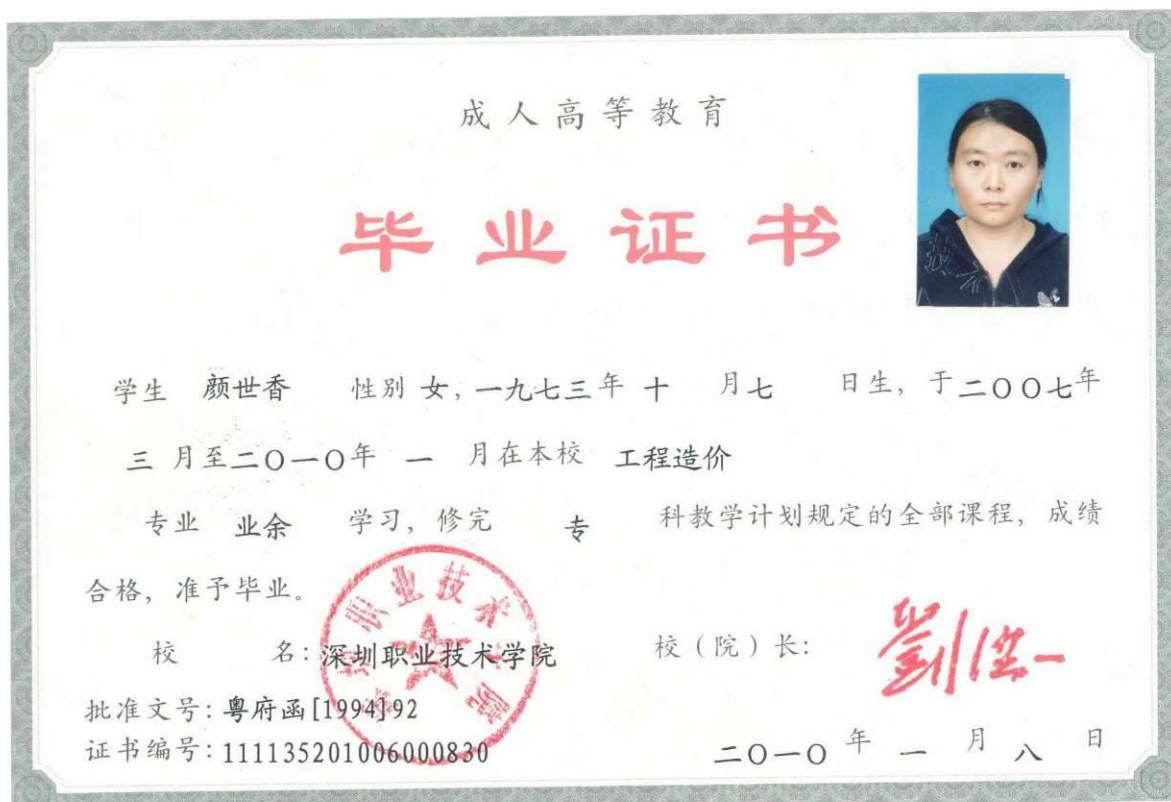 成人高等教育
毕业证书
学生 颜世香 性别 女，一九七三年 十 月七 日生，于二〇〇七年
三 月至二〇一〇年 一 月在本校 工程造价
专业 业余 学习，修完 专 科教学计划规定的全部课程，成绩
合格，准予毕业。
校 名：深圳职业技术学院 校（院）长：劉洪一
深圳职业技术学院
批准文号：粤府函[1994]92
证书编号：111135201006000830
二〇一〇 年 一 月 八 日